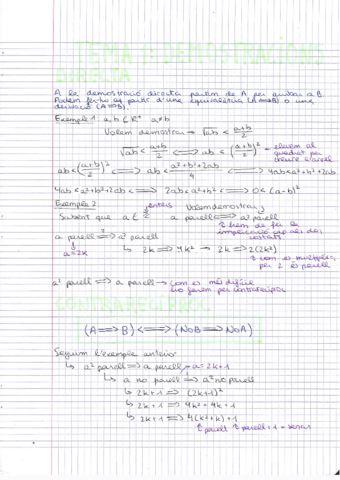 TEMA 1: DEMOSTRACIONS
DIRECTA
A la demostració directa partim de A per arribar a B.
Podem fer-ho a partir d'una equivalència (A⟺B) o una
derivació (A⟹B).
Exemple 1 a, b ∈ R⁺ a≠b
Volem demostrar → √ab < (a+b)/2
√ab < (a+b)/2 ⟺ ab < ((a+b)/2)² → elevem al
quadrat per
treure l'arrel
ab < ((a+b)/2)² ⟺ ab < (a²+b²+2ab)/4 ⟺ 4ab < a²+b²+2ab
4ab < a²+b²+2ab ⟺ 2ab < a²+b² ⟺ 0 < (a-b)²
Exemple 2
enters
Sabent que a ∈ Z Volem demostrar
a parell ⟺ a² parell
hem de fer la
implicació cap als dos
costats
a parell ⟹ a² parell
a=2k
↳ 2k ⟹ 4k² → 2k ⟹ 2(2k²)
com és multiplicat
per 2 és parell
a² parell ⟹ a parell → com és més difícil
ho farem per contrarecíproc
CONTRARECÍPROC
(A⟹B) ⟺ (NoB ⟹ NoA)
Seguim l'exemple anterior
↳ a² parell ⟹ a parell a=2k+1
↳ a no parell ⟹ a² no parell
↳ 2k+1 ⟹ (2k+1)²
↳ 2k+1 ⟹ 4k²+4k+1
↳ 2k+1 ⟹ 4(k²+k)+1
parell parell+1 = senar